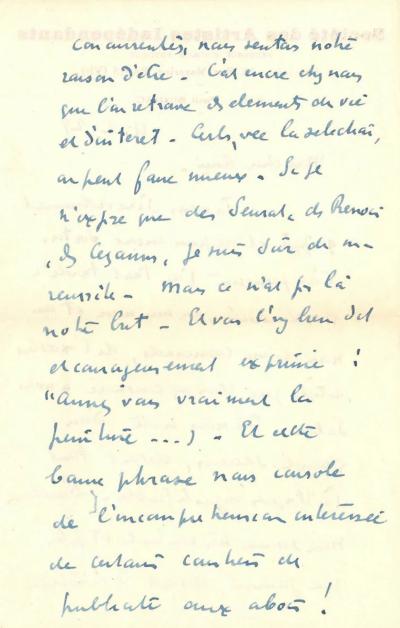 concurrentes, nous sentons notre
raison d'être. C'est encore chez nous
que l'on retrouve des elements de vie
et d'intérêt - Certes, avec la selection,
on peut faire mieux - Si je
n'expose que des Seurat, des Renoir
, des Cezanne, je suis sûr de ma
reussite - Mais ce n'est pas là
notre but - Et vous l'avez bien dit
et courageusement exprimé :
"Aimez vous vraiment la
peinture ...) - Et cette
bonne phrase nous console
de l'incomprehension intéressée
de certains courtiers de
publicité aux abois !